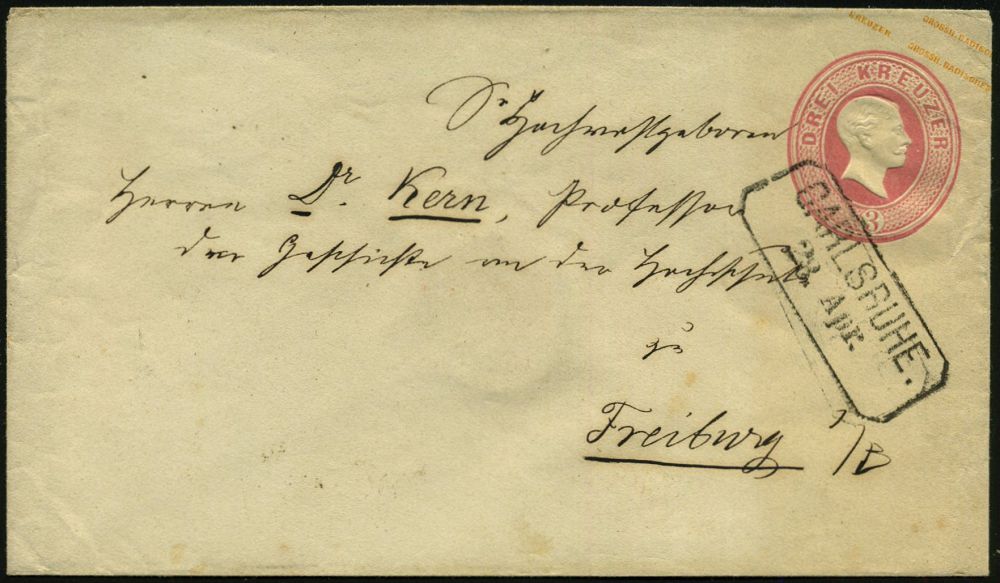 KREUZER GROSSH. BADISCH
GROSSH. BADISCHER
DREI KREUZER
3
Sr Hochwohlgeboren
Herrn Dr. Kern, Professor
der Geschichte an der Hochschule
zu
Freiburg i/B
CARLSRUHE.
23 Apr.